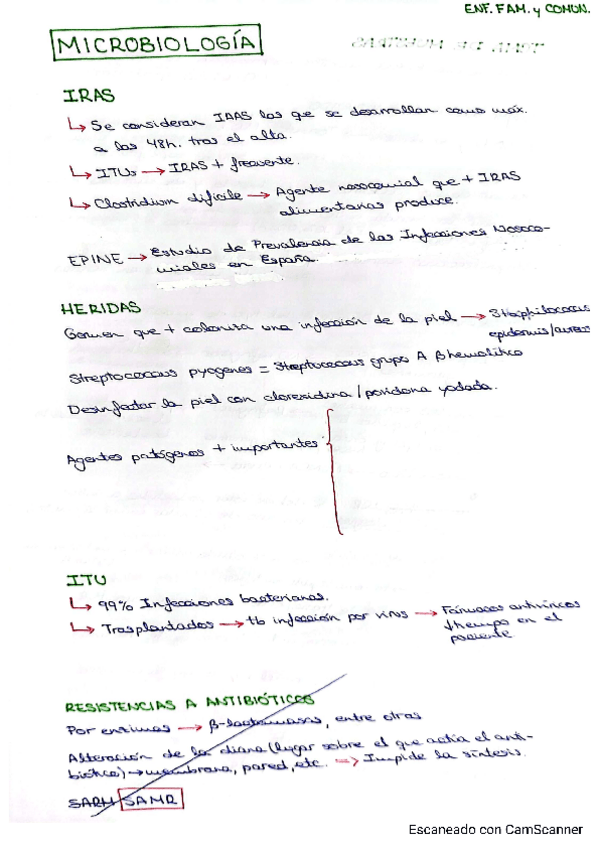 ENF. FAM. y COMUN.
MICROBIOLOGÍA
IRAS
↳ Se consideran IAAS las que se desarrollan como máx.
a las 48h. tras el alta.
↳ ITUs → IRAS + frecuente.
↳ Clostridium dificile → Agente nosocomial que + IRAS
alimentarias produce.
EPINE → Estudio de Prevalencia de las Infecciones Nosoco-
miales en España.
HERIDAS
Germen que + coloniza una infección de la piel → Staphilococcus
epidermis/aureus
Streptococcus pyogenes = Streptococcus grupo A β hemolítico
Desinfectar la piel con clorexidina / povidona yodada.
Agentes patógenos + importantes
ITU
↳ 99% Infecciones bacterianas.
↳ Trasplantados → tb infección por virus → Fármacos antivíricos
↑tiempo en el
paciente
RESISTENCIAS A ANTIBIÓTICOS
Por enzimas → β-lactamasas, entre otras
Alteración de la diana (lugar sobre el que actúa el anti-
biótico) → membrana, pared, etc. → Impide la síntesis.
SARM SAMR
Escaneado con CamScanner